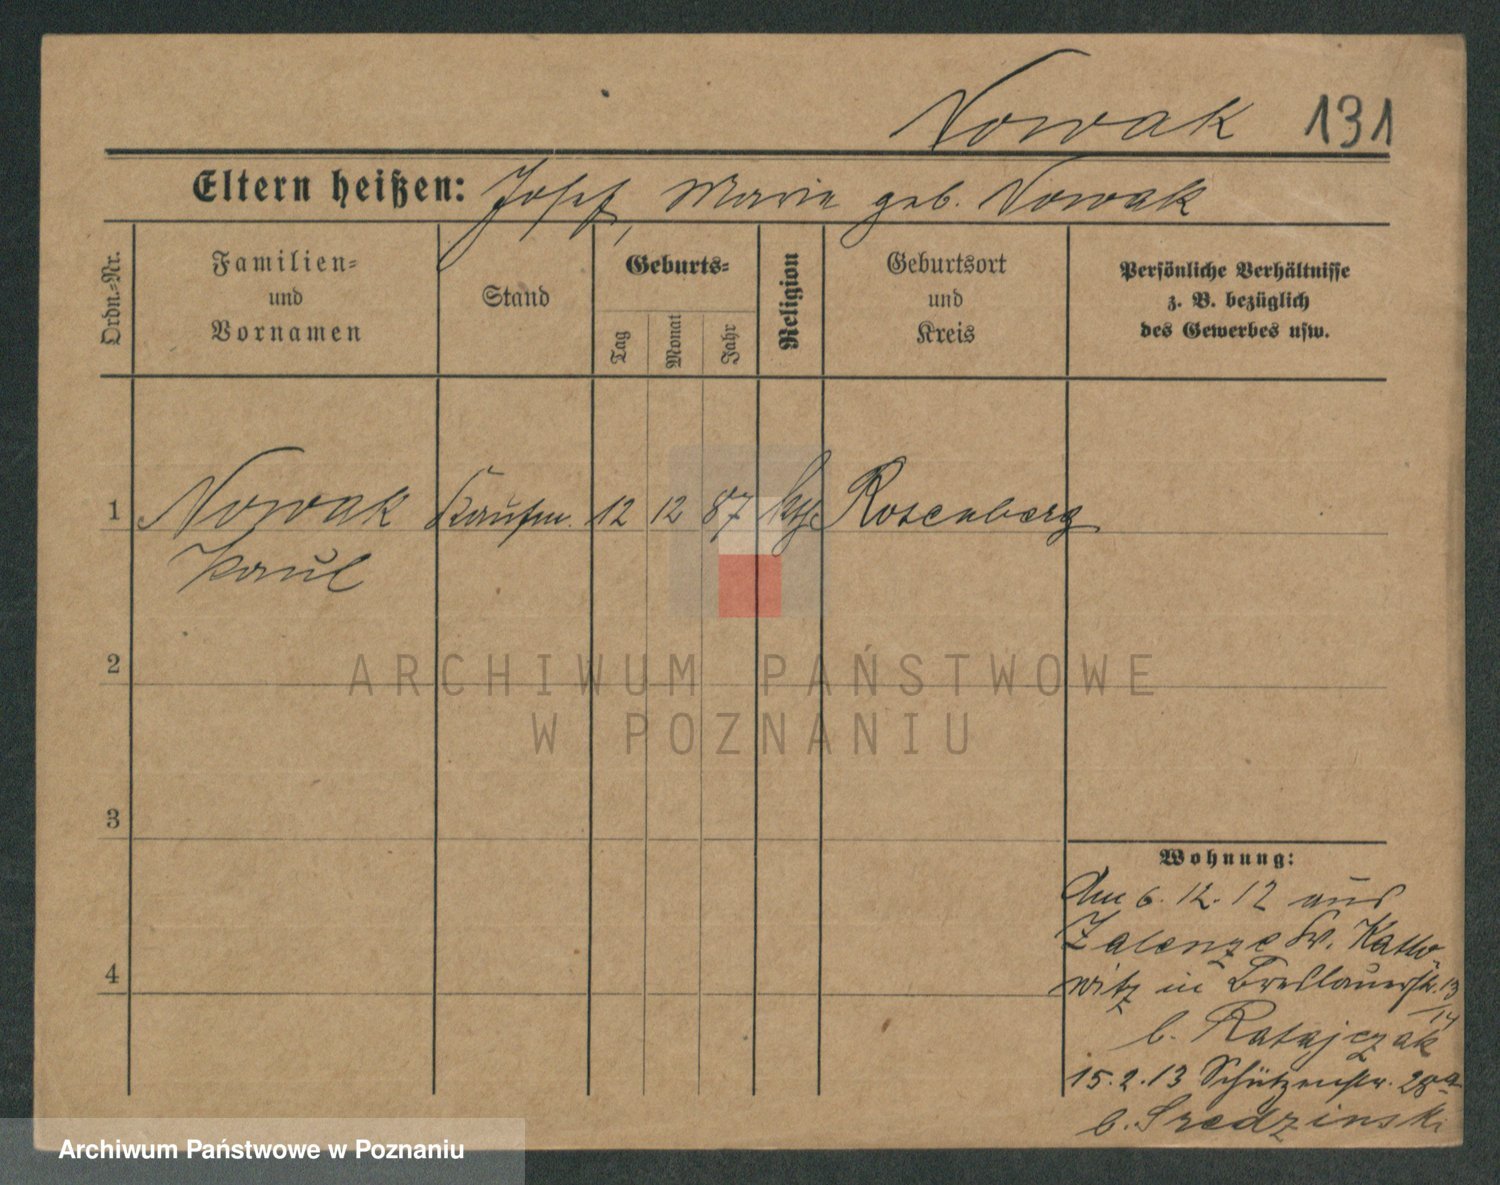 Nowak 131
Eltern heißen: Josef, Marie geb. Nowak
Ordn.-Nr.
Familien-
und
Vornamen
Stand
Geburts-
Tag
Monat
Jahr
Religion
Geburtsort
und
Kreis
Persönliche Verhältnisse
z. B. bezüglich
des Gewerbes usw.
1 Nowak Kaufm. 12 12 87 kth. Rosenberg
Paul
2
ARCHIWUM PAŃSTWOWE
W POZNANIU
3
Wohnung:
Am 6. 12. 12 aus
Zalenze Kr. Katto-
4
witz in Breslauerstr. 13/14
b. Ratajczak
15. 2. 13 Schützenstr. 28a
b. Sredzinski
Archiwum Państwowe w Poznaniu